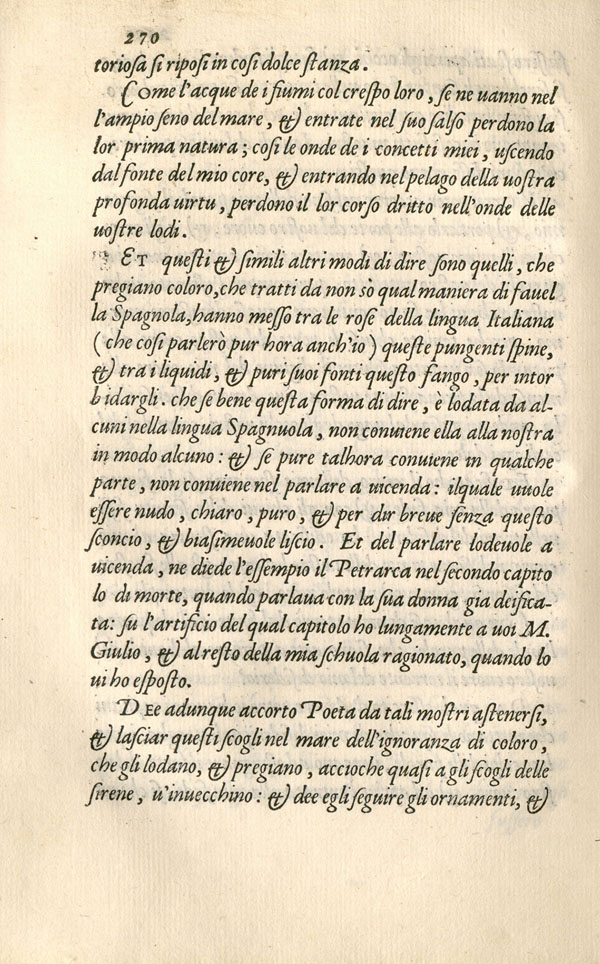 270
toriosa si riposi in cosi dolce stanza.
Come l'acque de i fiumi col crespo loro, se ne uanno nel
l'ampio seno del mare, & entrate nel suo salso perdono la
lor prima natura; cosi le onde de i concetti miei, uscendo
dal fonte del mio core, & entrando nel pelago della uostra
profonda uirtu, perdono il lor corso dritto nell'onde delle
uostre lodi.
Et questi & simili altri modi di dire sono quelli, che
pregiano coloro, che tratti da non sò qual maniera di fauel
la Spagnola, hanno messo tra le rose della lingua Italiana
(che cosi parlerò pur hora anch'io) queste pungenti spine,
& tra i liquidi, & puri suoi fonti questo fango, per intor
bidargli. che se bene questa forma di dire, è lodata da al-
cuni nella lingua Spagnuola, non conuiene ella alla nostra
in modo alcuno: & se pure talhora conuiene in qualche
parte, non conuiene nel parlare a uicenda: ilquale uuole
essere nudo, chiaro, puro, & per dir breue senza questo
sconcio, & biasimeuole liscio. Et del parlare lodeuole a
uicenda, ne diede l'essempio il Petrarca nel secondo capito
lo di morte, quando parlaua con la sua donna gia deifica-
ta: su l'artificio del qual capitolo ho lungamente a uoi M.
Giulio, & al resto della mia schuola ragionato, quando lo
ui ho esposto.
Dee adunque accorto Poeta da tali mostri astenersi,
& lasciar questi scogli nel mare dell'ignoranza di coloro,
che gli lodano, & pregiano, accioche quasi a gli scogli delle
sirene, u'inuecchino: & dee egli seguire gli ornamenti, &